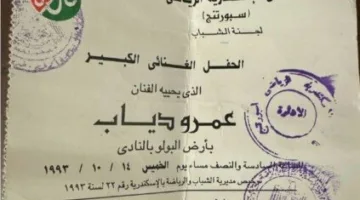 (سبورتنج)
لجنة الشباب
الحفل الغنائى الكبير
الذى يحييه الفنان
عمرو دياب
بأرض البولو بالنادى
السادسة والنصف مساء يوم الخميس ١٤ / ١٠ / ١٩٩٣
مديرية الشباب والرياضة بالإسكندرية رقم ٢٢ لسنة ١٩٩٣
الأدارة